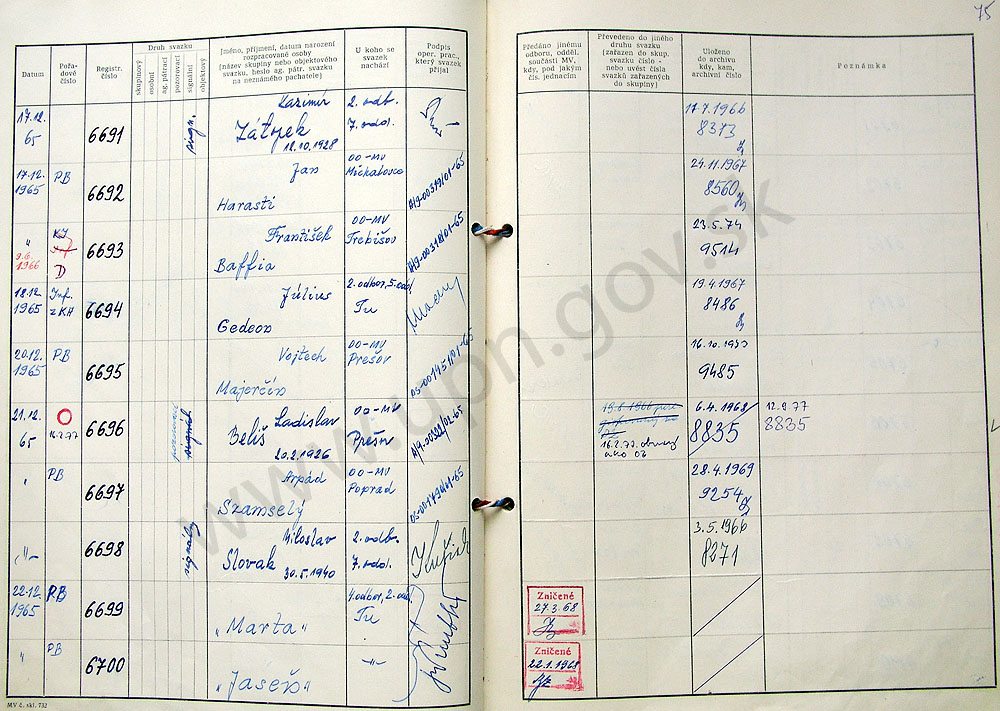 75
Datum
Pořa-
dové
číslo
Registr.
číslo
Druh svazku
skupinový
osobní
ag. pátrací
pozorovací
signální
objektový
Jméno, příjmení, datum narození
rozpracované osoby
(název skupiny nebo objektového
svazku, heslo ag. pátr. svazku
na neznámého pachatele)
U koho se
svazek
nachází
Podpis
oper. prac.,
který svazek
přijal
Předáno jinému
odboru, odděl.
součásti MV,
kdy, pod jakým
čís. jednacím
Převedeno do jiného
druhu svazku
(zařazen do skup.
svazku číslo -
nebo uvést čísla
svazků zařazených
do skupiny)
Uloženo
do archivu
kdy, kam,
archivní číslo
Poznámka
17.12.
65
6691
sign.
Kazimír
Zátopek
12.10.1928
2. odb.
7. odd.
11.7.1966
8373
17.12.
1965
PB
6692
Jan
Harasti
OO-MV
Michalovce
A/9-00319/01-65
24.11.1967
8560
"
9.6.
1966
D
6693
František
Baffia
OO-MV
Trebišov
A/9-00318/01-65
23.5.74
9514
18.12.
1965
Inf.
z KH
6694
Július
Gedeon
2. odbor, 5. odd.
Tu
19.4.1967
8486
20.12.
1965
PB
6695
Vojtech
Majerčín
OO-MV
Prešov
OS-001451/01-65
16.10.1973
9485
21.12.
65
16.2.77
6696
signál
Ladislav
Beliš
20.2.1926
OO-MV
Prešov
16.2.77
ako OZ
6.4.1968
8835
12.2.77
8835
"
PB
6697
Arpád
Szamselý
OO-MV
Poprad
28.4.1969
9254
"
6698
signálny
Miloslav
Slovak
30.5.1940
2. odb.
7. odd.
3.5.1966
8271
22.12.
1965
PB
6699
„Marta"
4. odbor, 2. odd.
Tu
Zničené
27.3.68
"
PB
6700
„Jaseň"
-"-
Zničené
22.1.1968
MV č. skl. 732
www.upn.gov.sk